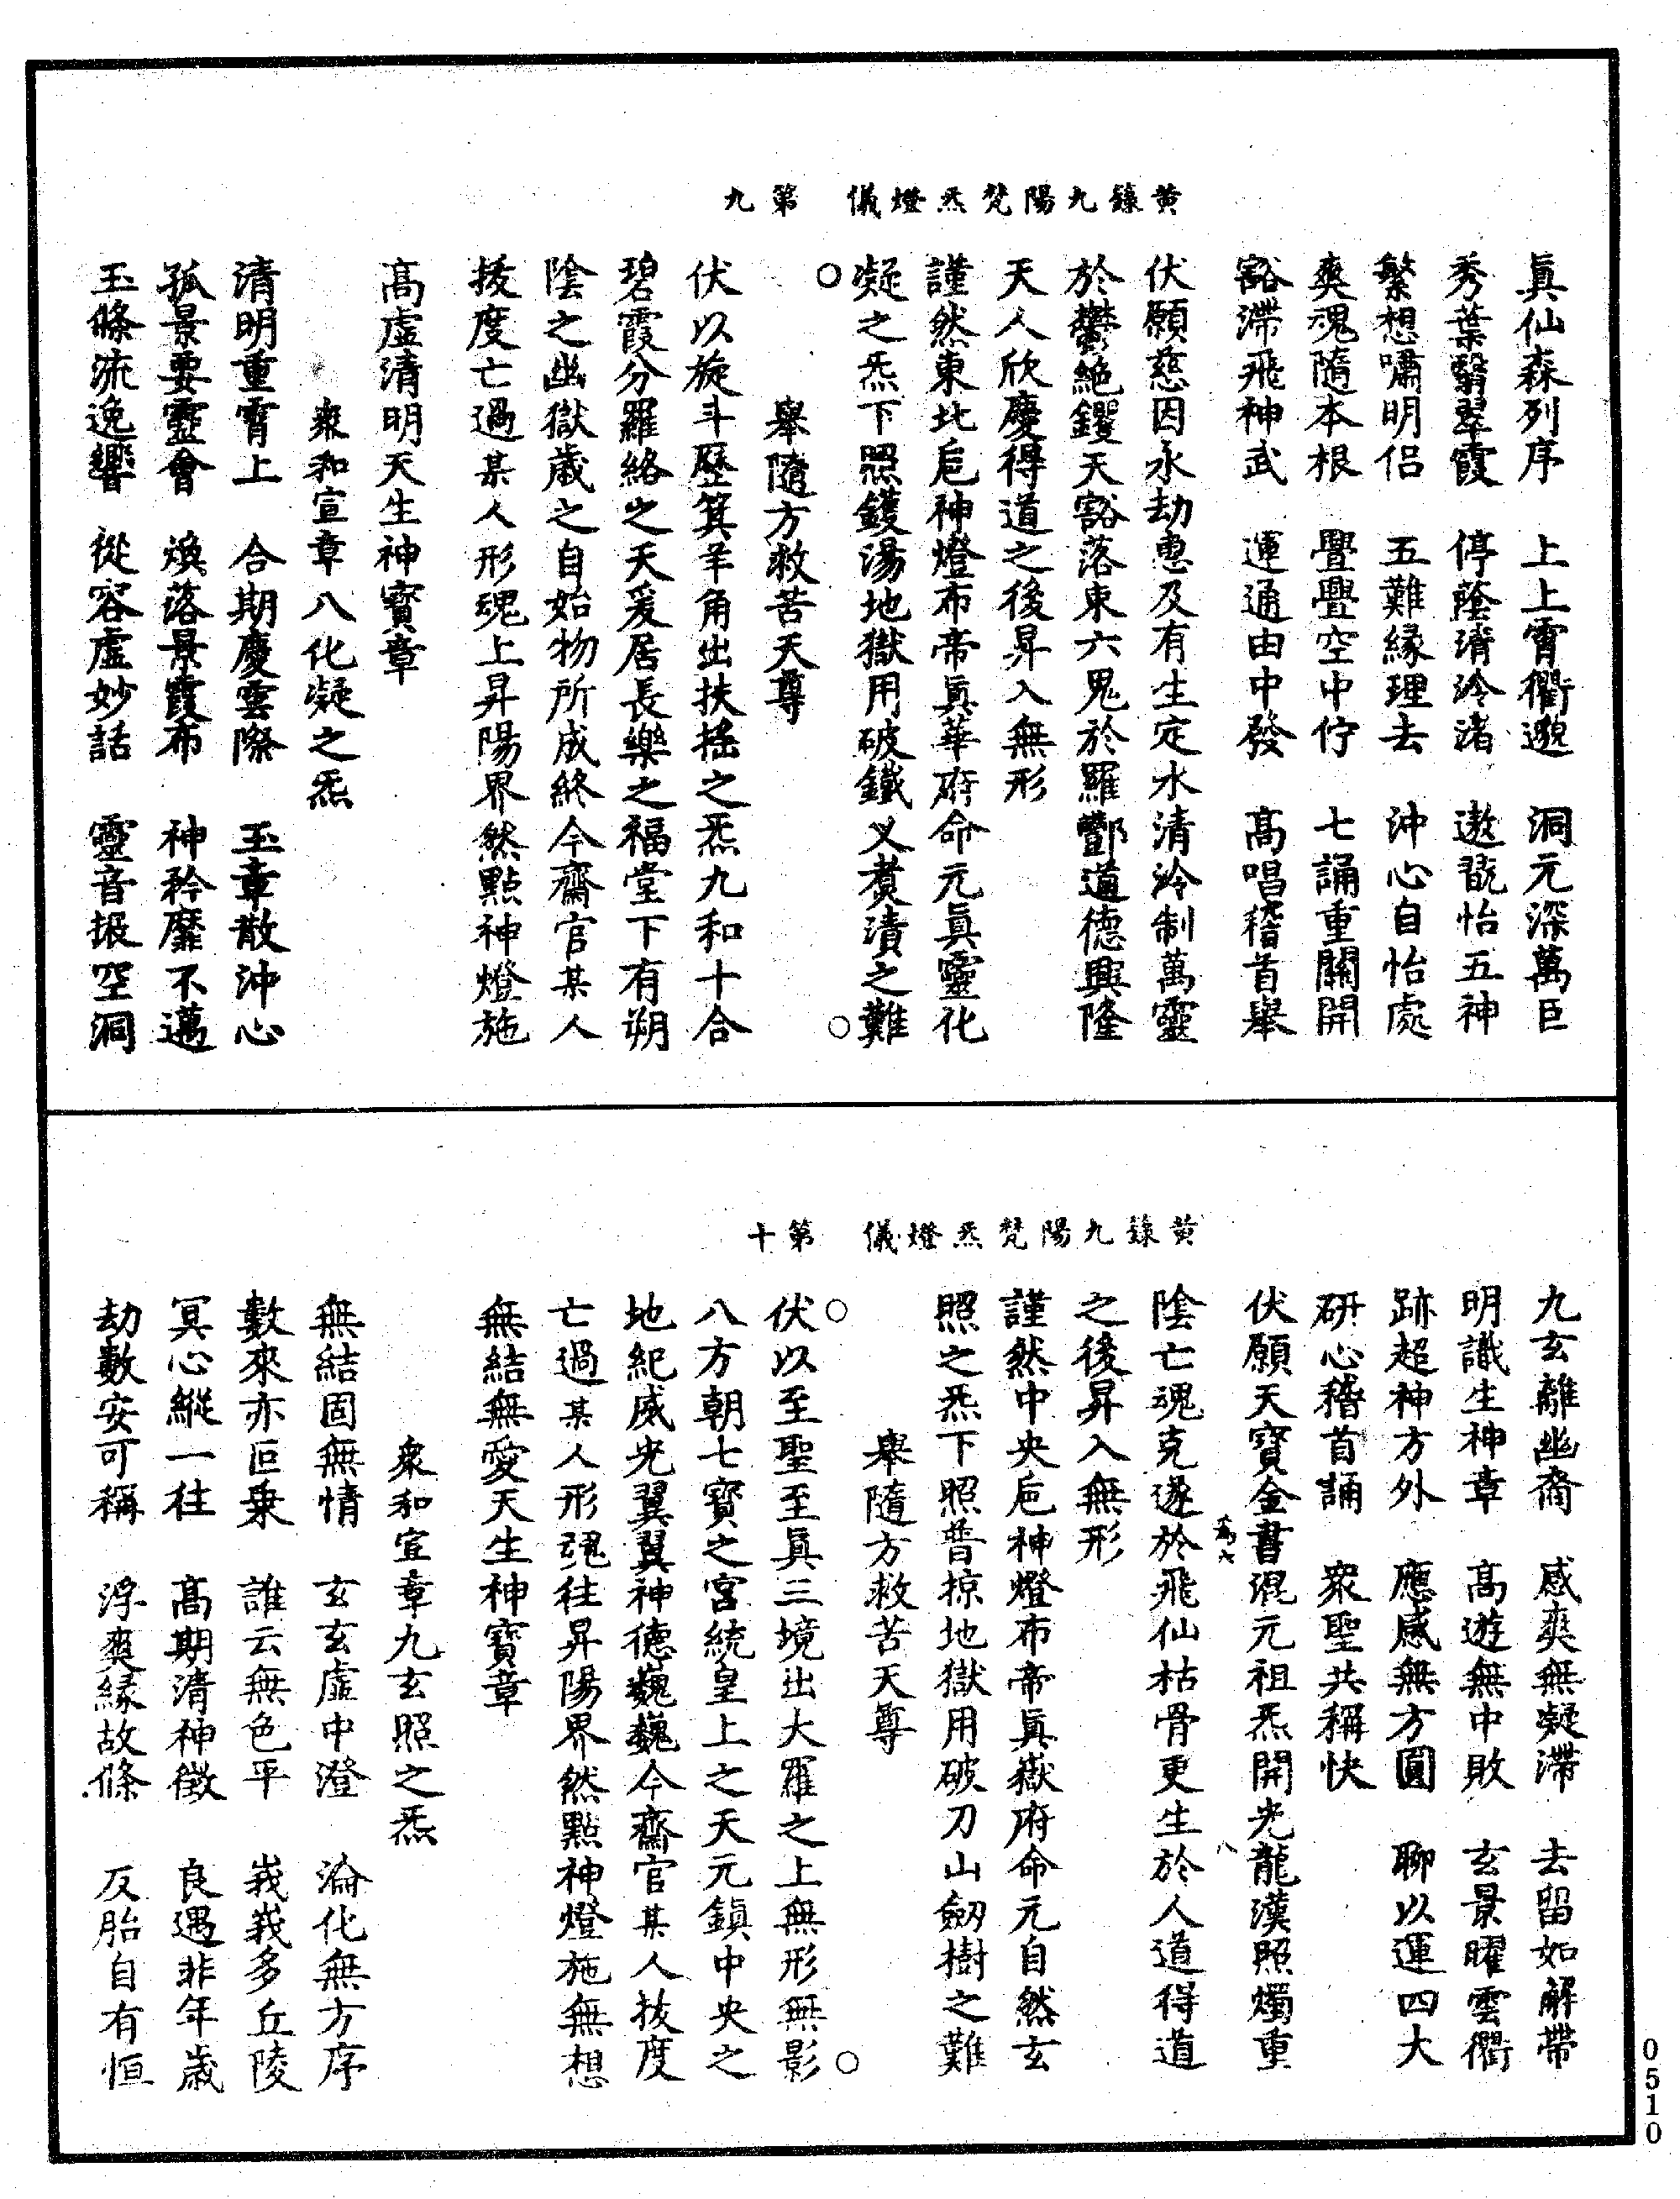 黃籙九陽梵炁燈儀　第九
真仙森列序　上上霄衢邈　洞元深萬巨
秀葉翳翠霞　停蔭清泠渚　遨翫怡五神
繁想嘯明侶　五難緣理去　沖心自怡處
爽魂隨本根　亹亹空中佇　七誦重關開
豁滯飛神武　運通由中發　高唱稽首舉
伏願慈因永劫惠及有生定水清泠制萬靈
於鬱絕钁天豁落束六鬼於羅酆道德興隆
天人欣慶得道之後昇入無形
謹然東北巵神燈布帝真華府命元真靈化
凝之炁下照鑊湯地獄用破鐵叉㷟漬之難
○　舉隨方救苦天尊　○
伏以旋斗歷箕羊角出扶搖之炁九和十合
碧霞分羅絡之天爰居長樂之福堂下有朔
陰之幽獄歲之自始物所成終今齋官某人
拔度亡過某人形魂上昇陽界然點神燈施
高虛清明天生神寶章
衆和宣章八化凝之炁
清明重霄上　合期慶雲際　玉章散沖心
孤景要靈會　煥落景霞布　神矜靡不邁
玉條流逸響　從容虛妙話　靈音振空洞
黃籙九陽梵炁燈儀　第十
九玄離幽裔　感爽無凝滯　去留如解帶
明識生神章　高遊無中敗　玄景曜雲衢
跡超神方外　應感無方圓　聊以運四大
研心稽首誦　衆聖共稱快
伏願天寶金書混元祖炁開光龍漢照燭重
陰亡魂克遂於飛仙枯骨更生於人道得道
之後昇入無形
謹然中央巵神燈布帝真嶽府命元自然玄
照之炁下照普掠地獄用破刀山劒樹之難
舉隨方救苦天尊
○　○
伏以至聖至真三境出大羅之上無形無影
八方朝七寶之宮統皇上之天元鎮中央之
地紀威光翼翼神德巍巍今齋官某人拔度
亡過某人形魂往昇陽界然點神燈施無想
無結無愛天生神寶章
衆和宣章九玄照之炁
無結固無情　玄玄虛中澄　淪化無方序
數來亦叵乗　誰云無色平　峩峩多丘陵
冥心縱一往　高期清神徵　良遇非年歲
劫數安可稱　浮爽緣故條　反胎自有恒
0510